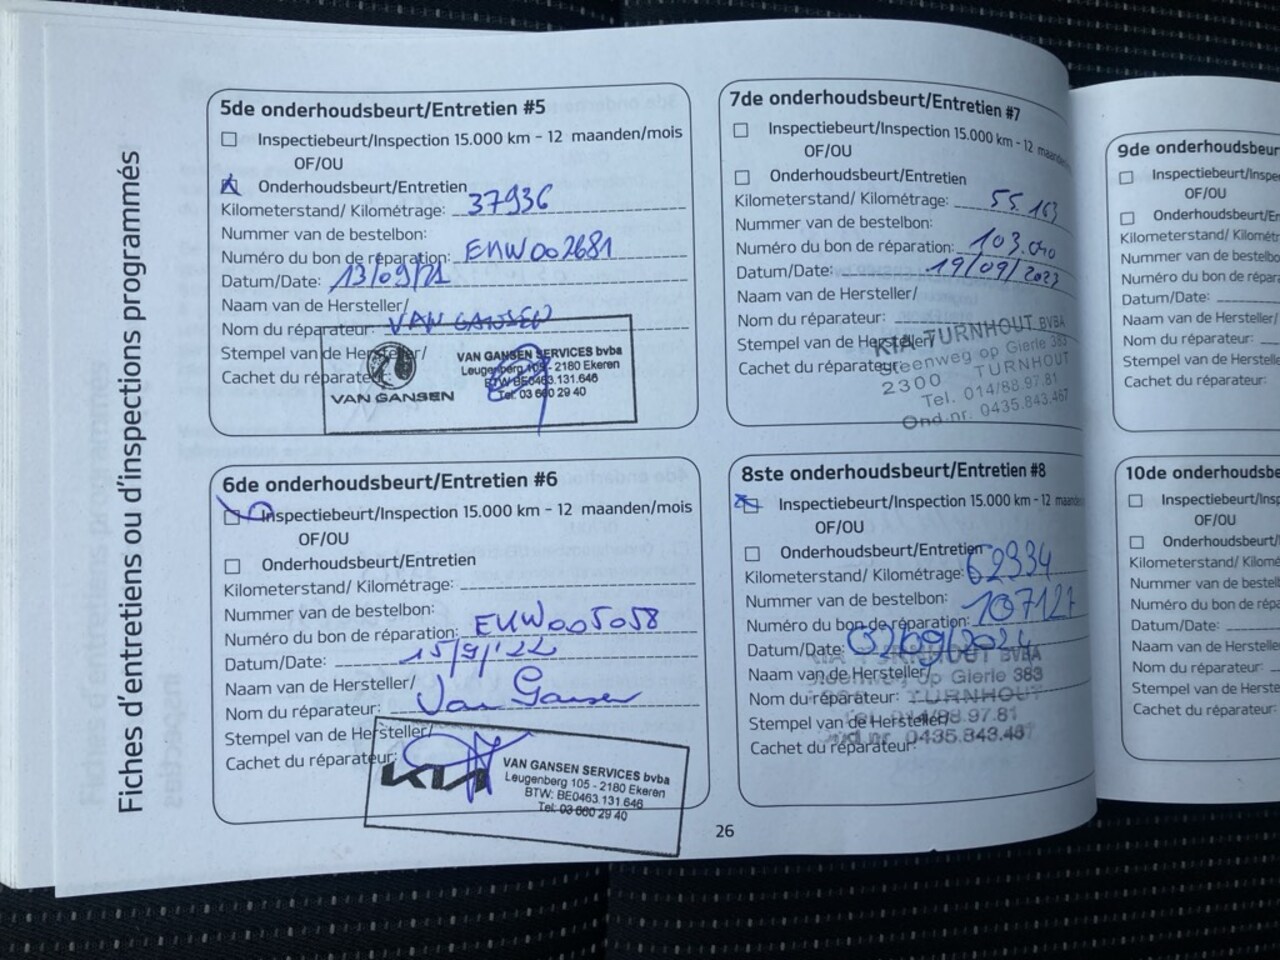 Fiches d'entretiens ou d'inspections programmés
5de onderhoudsbeurt/Entretien #5
Inspectiebeurt/Inspection 15.000 km - 12 maanden/mois
OF/OU
Onderhoudsbeurt/Entretien
Kilometerstand/ Kilométrage: 37936
Nummer van de bestelbon:
Numéro du bon de réparation: ENW002681
Datum/Date: 13/09/21
Naam van de Hersteller/
Nom du réparateur: VAN GANSEN
Stempel van de Hersteller/
Cachet du réparateur:
VAN GANSEN
VAN GANSEN SERVICES bvba
Leugenberg 105 - 2180 Ekeren
BTW BE0463.131.646
Tel: 03 660 29 40
6de onderhoudsbeurt/Entretien #6
Inspectiebeurt/Inspection 15.000 km - 12 maanden/mois
OF/OU
Onderhoudsbeurt/Entretien
Kilometerstand/ Kilométrage:
Nummer van de bestelbon:
Numéro du bon de réparation: EKW005058
Datum/Date: 15/9/'22
Naam van de Hersteller/
Nom du réparateur: Van Gansen
Stempel van de Hersteller/
Cachet du réparateur:
KIA
VAN GANSEN SERVICES bvba
Leugenberg 105 - 2180 Ekeren
BTW: BE0463.131.646
Tel: 03 660 29 40
7de onderhoudsbeurt/Entretien #7
Inspectiebeurt/Inspection 15.000 km - 12
OF/OU
Onderhoudsbeurt/Entretien
Kilometerstand/ Kilométrage: 55.163
Nummer van de bestelbon:
Numéro du bon de réparation: 103.040
Datum/Date: 19/09/2023
Naam van de Hersteller/
Nom du réparateur:
Stempel van de Hersteller/
Cachet du réparateur:
KIA TURNHOUT BVBA
Steenweg op Gierle 383
2300 TURNHOUT
Tel. 014/88.97.81
Ond.nr. 0435.843.467
8ste onderhoudsbeurt/Entretien #8
Inspectiebeurt/Inspection 15.000 km - 12
OF/OU
Onderhoudsbeurt/Entretien
Kilometerstand/ Kilométrage: 62334
Nummer van de bestelbon:
Numéro du bon de réparation: 107127
Datum/Date: 02/09/2024
Naam van de Hersteller/
Nom du réparateur:
Stempel van de Hersteller/
Cachet du réparateur:
KIA TURNHOUT BVBA
Steenweg op Gierle 383
TURNHOUT
Tel. 014/88.97.81
Ond.nr. 0435.843.467
26
9de onderhoudsbeur
Inspectiebeurt/Inspe
OF/OU
Onderhoudsbeurt/E
Kilometerstand/ Kilométr
Nummer van de bestelbon:
Numéro du bon de répar
Datum/Date:
Naam van de Hersteller/
Nom du réparateur:
Stempel van de Herstelle
Cachet du réparateur:
10de onderhoudsbe
Inspectiebeurt/Ins
OF/OU
Onderhoudsbeurt/
Kilometerstand/ Kilome
Nummer van de bestelb
Numéro du bon de répa
Datum/Date:
Naam van de Hersteller
Nom du réparateur:
Stempel van de Herste
Cachet du réparateur: